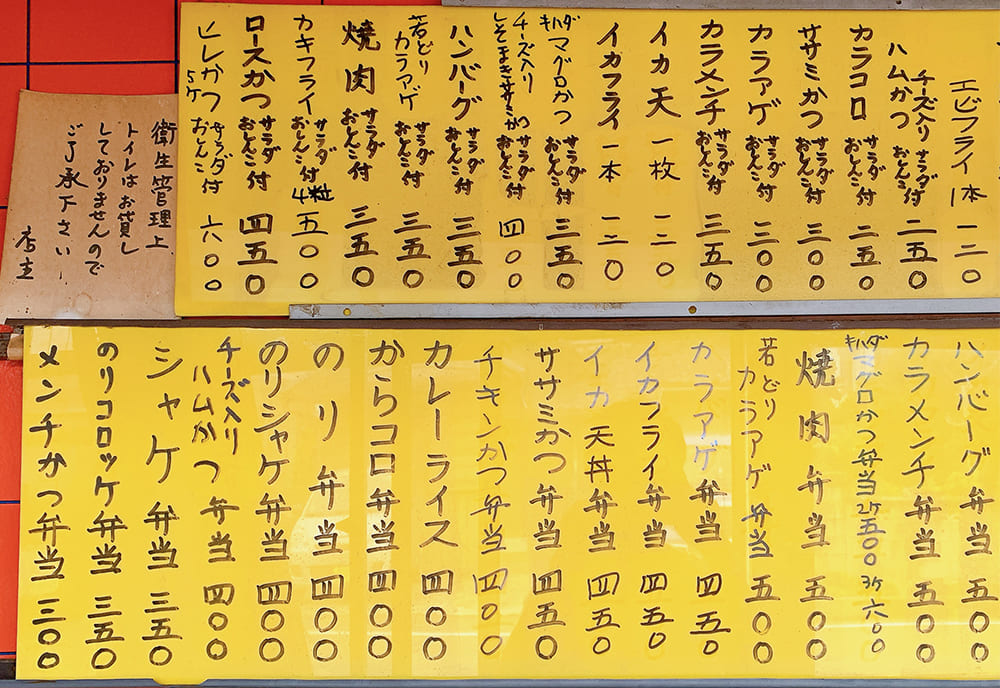 エビフライ 1本 一二〇
チーズ入り
ハムかつ サラダ おしんこ 付 二五〇
カラコロ サラダ おしんこ 付 二五〇
ササミかつ サラダ おしんこ 付 三〇〇
カラアゲ サラダ おしんこ 付 三〇〇
カラメンチ サラダ おしんこ 付 三五〇
イカ天 一枚 一三〇
イカフライ 一本 一三〇
キハダ
マグロかつ サラダ おしんこ 付 三五〇
チーズ入り
しそまきササミかつ サラダ おしんこ 付 四〇〇
ハンバーグ サラダ おしんこ 付 三五〇
若どり
カラアゲ サラダ おしんこ 付 三五〇
焼肉 サラダ おしんこ 付 三五〇
カキフライ サラダ おしんこ 付 4粒 五〇〇
ロースかつ サラダ おしんこ 付 四五〇
ヒレかつ 5ケ サラダ おしんこ 付 六〇〇
衛生管理上
トイレはお貸し
しておりませんので
ご了承下さい
店主
ハンバーグ弁当 五〇〇
カラメンチ弁当 五〇〇
キハダ
マグロかつ弁当 2ケ五〇〇 3ケ六〇〇
焼肉弁当 五〇〇
若どり
カラアゲ弁当 五〇〇
カラアゲ弁当 四五〇
イカフライ弁当 四五〇
イカ天丼弁当 四五〇
ササミかつ弁当 四五〇
チキンかつ弁当 四〇〇
カレーライス 四〇〇
からコロ弁当 四〇〇
のり弁当 四〇〇
のりシャケ弁当 四〇〇
チーズ入り
ハムかつ弁当 四〇〇
シャケ弁当 三五〇
のりコロッケ弁当 三五〇
メンチかつ弁当 三〇〇